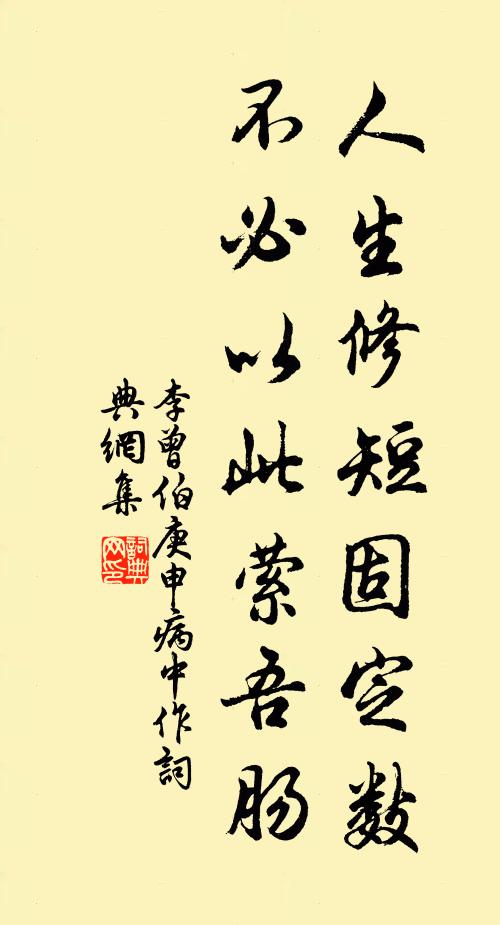 人生修短固定数
不必以此萦吾肠
李曾伯庚申病中作詞
典網集
詞典網印